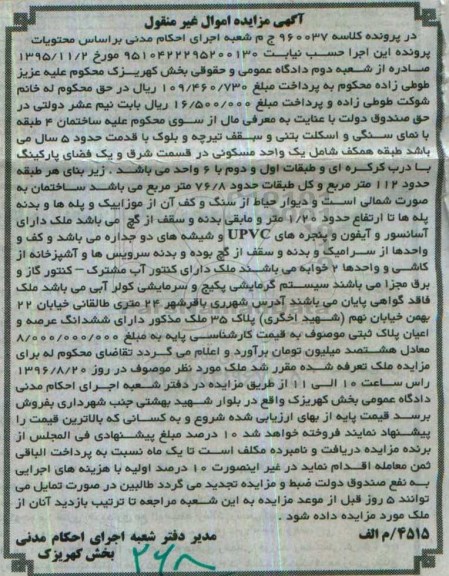 آگهی مزایده اموال غیر منقول
در پرونده کلاسه ۹۶۰۰۳۷ ج م شعبه اجرای احکام مدنی براساس محتویات
پرونده این اجرا حسب نیابت ۹۵۱۰۴۲۲۲۹۵۲۰۰۱۳۰ مورخ ۱۳۹۵/۱۱/۲
صادره از شعبه دوم دادگاه عمومی و حقوقی بخش کهریزک محکوم علیه عزیز
طوطی زاده محکوم به پرداخت مبلغ ۱۰۹/۴۶۰/۷۳۰ ریال در حق محکوم له خانم
شوکت طوطی زاده و پرداخت مبلغ ۱۶/۵۰۰/۰۰۰ ریال بابت نیم عشر دولتی در
حق صندوق دولت با عنایت به معرفی مال از سوی محکوم علیه ساختمان ۴ طبقه
با نمای سنگی و اسکلت بتنی و سقف تیرچه و بلوک با قدمت حدود ۵ سال می
باشد طبقه همکف شامل یک واحد مسکونی در قسمت شرق و یک فضای پارکینگ
با درب کرکره ای و طبقات اول و دوم با ۶ واحد می باشند . زیر بنای هر طبقه
حدود ۱۱۲ متر مربع و کل طبقات حدود ۷۶/۸ متر مربع می باشند ساختمان به
صورت شمالی است و دیوار حیاط از سنگ و کف آن از موزاییک و پله ها و بدنه
پله ها تا ارتفاع حدود ۱/۲۰ متر و مابقی بدنه و سقف از گچ می باشد ملک دارای
آسانسور و آیفون و پنجره های UPVC و شیشه های دو جداره می باشد و کف و
واحدها از سرامیک و بدنه و سقف از گچ بوده و بدنه سرویس ها و آشپزخانه از
کاشی و واحدها ۲ خوابه می باشند ملک دارای کنتور آب مشترک – کنتور گاز و
برق مجزا می باشند سیستم گرمایشی پکیج و سرمایشی کولر آبی می باشد ملک
فاقد گواهی پایان می باشند آدرس شهرری باقرشهر ۲۴ متری طالقانی خیابان ۲۲
بهمن خیابان نهم (شهید اخگری) پلاک ۳۵ ملک مذکور دارای ششدانگ عرصه و
اعیان پلاک ثبتی موصوف به قیمت کارشناسی پایه به مبلغ ۸/۰۰۰/۰۰۰/۰۰۰
معادل هشتصد میلیون تومان برآورد و اعلام می گردد تقاضای محکوم له برای
مزایده ملک تعرفه شده مقرر شد ملک مورد نظر موصوف در روز ۱۳۹۶/۸/۲۰
راس ساعت ۱۰ الی ۱۱ از طریق مزایده در دفتر شعبه اجرای احکام مدنی
دادگاه عمومی بخش کهریزک واقع در بلوار شهید بهشتی جنب شهرداری بفروش
برسد قیمت پایه از بهای ارزیابی شده شروع و به کسانی که بالاترین قیمت را
پیشنهاد نمایند فروخته خواهد شد ۱۰ درصد مبلغ پیشنهادی فی المجلس از
برنده مزایده دریافت و نامبرده مکلف است تا یک ماه نسبت به پرداخت الباقی
ثمن معامله اقدام نماید در غیر اینصورت ۱۰ درصد اولیه با هزینه های اجرایی
به نفع صندوق دولت ضبط و مزایده تجدید می گردد طالبین در صورت تمایل می
توانند ۵ روز قبل از موعد مزایده به این شعبه مراجعه تا ترتیب بازدید آنان از
ملک مورد مزایده داده شود .
۴۵۱۵/م الف
مدیر دفتر شعبه اجرای احکام مدنی
بخش کهریزک